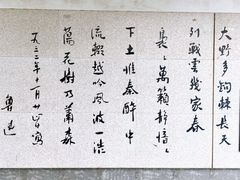 大野多鉤棘長天
列戰雲幾家春
裊〻萬籟靜愔〻
下土惟秦醉中
流輟越吟風波一浩
蕩花樹已蕭森
年十一月廿日
魯迅